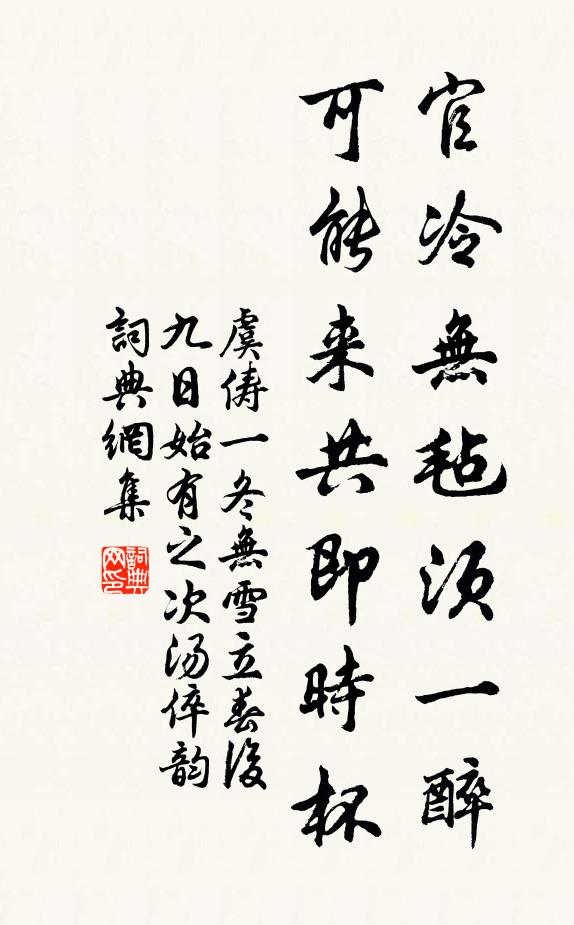 官冷無毡須一醉
可能来共即時杯
虞儔一冬無雪立春後
九日始有之次湯倅韵
詞典網集
詞典
网印